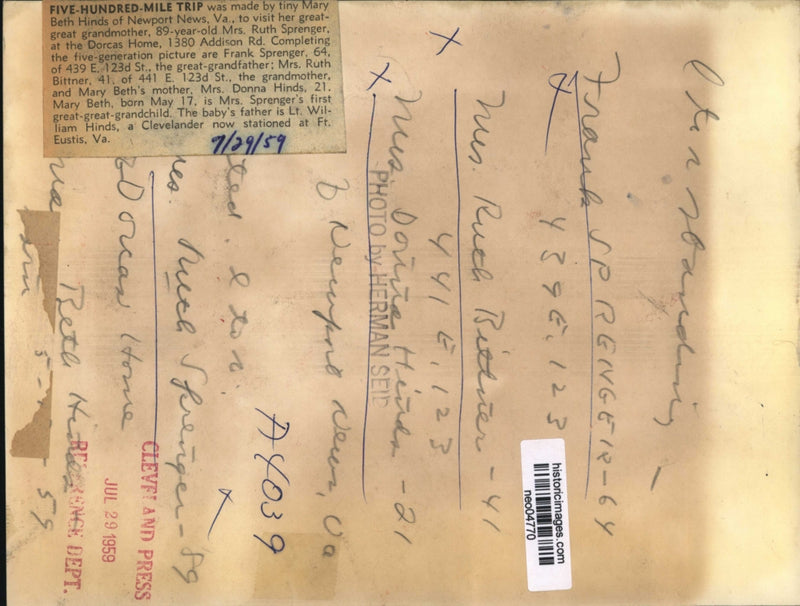 FIVE-HUNDRED-MILE TRIP was made by tiny Mary
Beth Hinds of Newport News, Va., to visit her great-
great grandmother, 89-year-old Mrs. Ruth Sprenger,
at the Dorcas Home, 1380 Addison Rd. Completing
the five-generation picture are Frank Sprenger, 64,
of 439 E. 123d St., the great-grandfather; Mrs. Ruth
Bittner, 41, of 441 E. 123d St., the grandmother,
and Mary Beth's mother, Mrs. Donna Hinds, 21.
Mary Beth, born May 17, is Mrs. Sprenger's first
great-great-grandchild. The baby's father is Lt. Wil-
liam Hinds, a Clevelander now stationed at Ft.
Eustis, Va.
7/29/59
standing —
Frank SPRENGER-64
439 E. 123
Mrs. Ruth Bittner - 41
441 E. 123
Mrs. Donna Hinds - 21
PHOTO by HERMAN SEID
Newport News, Va
l to r.
Ruth Sprenger - 89
Dorcas Home
Beth Hinds
A4039
CLEVELAND PRESS
JUL 29 1959
REFERENCE DEPT.
historicimages.com
neo04770